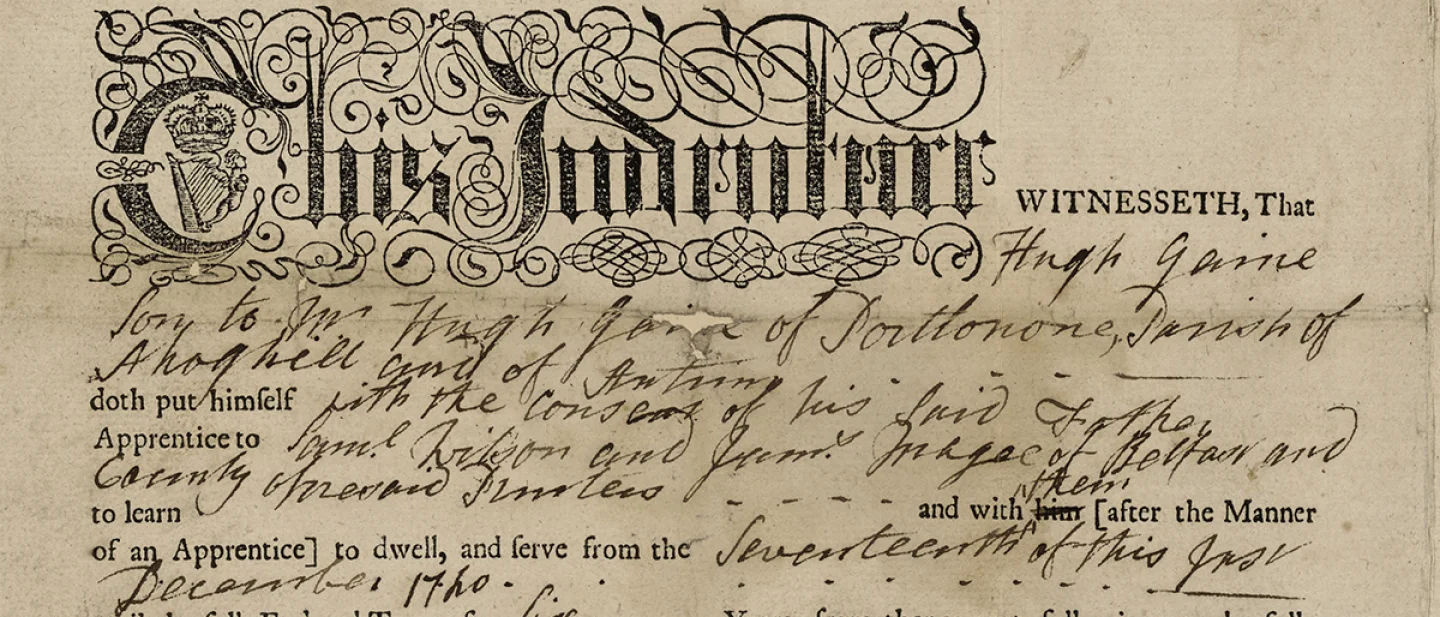 This Indenture WITNESSETH, That
Hugh Gaine
Son to Mr Hugh Gaine of Portlonone, Parish of
Ahoghill and of Antrim
doth put himſelf with the consent of his said Father
Apprentice to Saml. Wilson and Jams. Magee of Belfast and
County aforesaid Printers
to learn and with him them [after the Manner
of an Apprentice] to dwell, and ſerve from the Seventeenth of this Inst
December 1740.